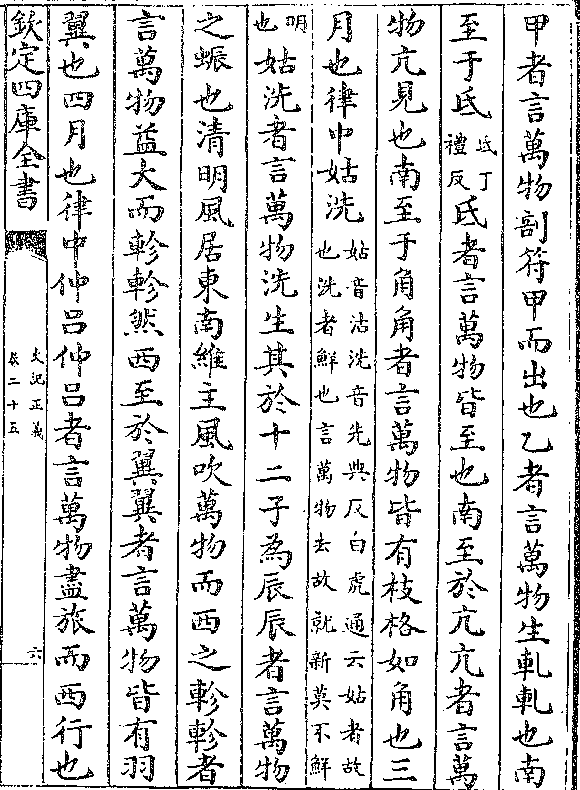 甲者言萬物剖符甲而出也乙者言萬物生軋軋也南
至于氐氐丁禮反氐者言萬物皆至也南至於亢亢者言萬
物亢見也南至于角角者言萬物皆有枝格如角也三
月也律中姑洗姑音沽洗音先典反白虎通云姑者故也洗者鮮也言萬物去故就新莫不鮮
明也姑洗者言萬物洗生其於十二子為辰辰者言萬物
之蜄也清明風居東南維主風吹萬物而西之軫軫者
言萬物益大而軫軫然西至於翼翼者言萬物皆有羽
翼也四月也律中仲呂仲呂者言萬物盡旅而西行也
欽定四庫全書
史記正義
卷二十五
六